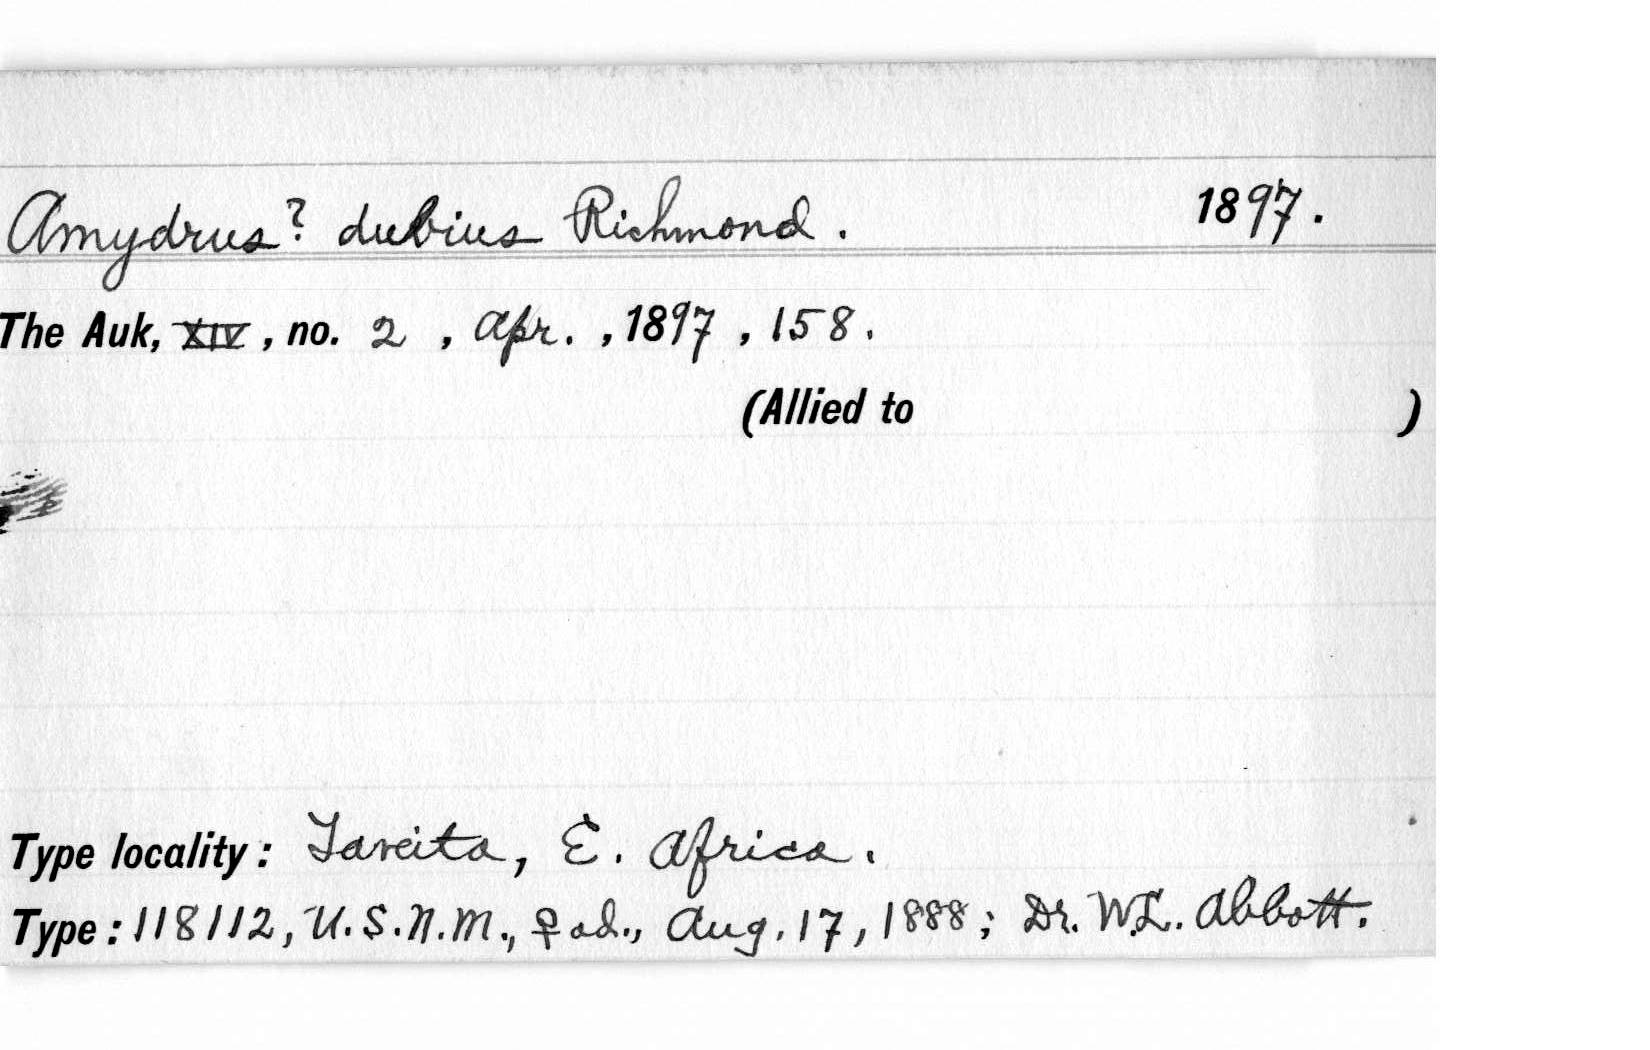 Amydrus? dubius Richmond. 1897.
The Auk, XIV, no. 2, Apr., 1897, 158.
(Allied to )
Type locality: Taveita, E. Africa.
Type: 118112, U.S.N.M., ♀ ad., Aug. 17, 1888; Dr. W.L. Abbott.